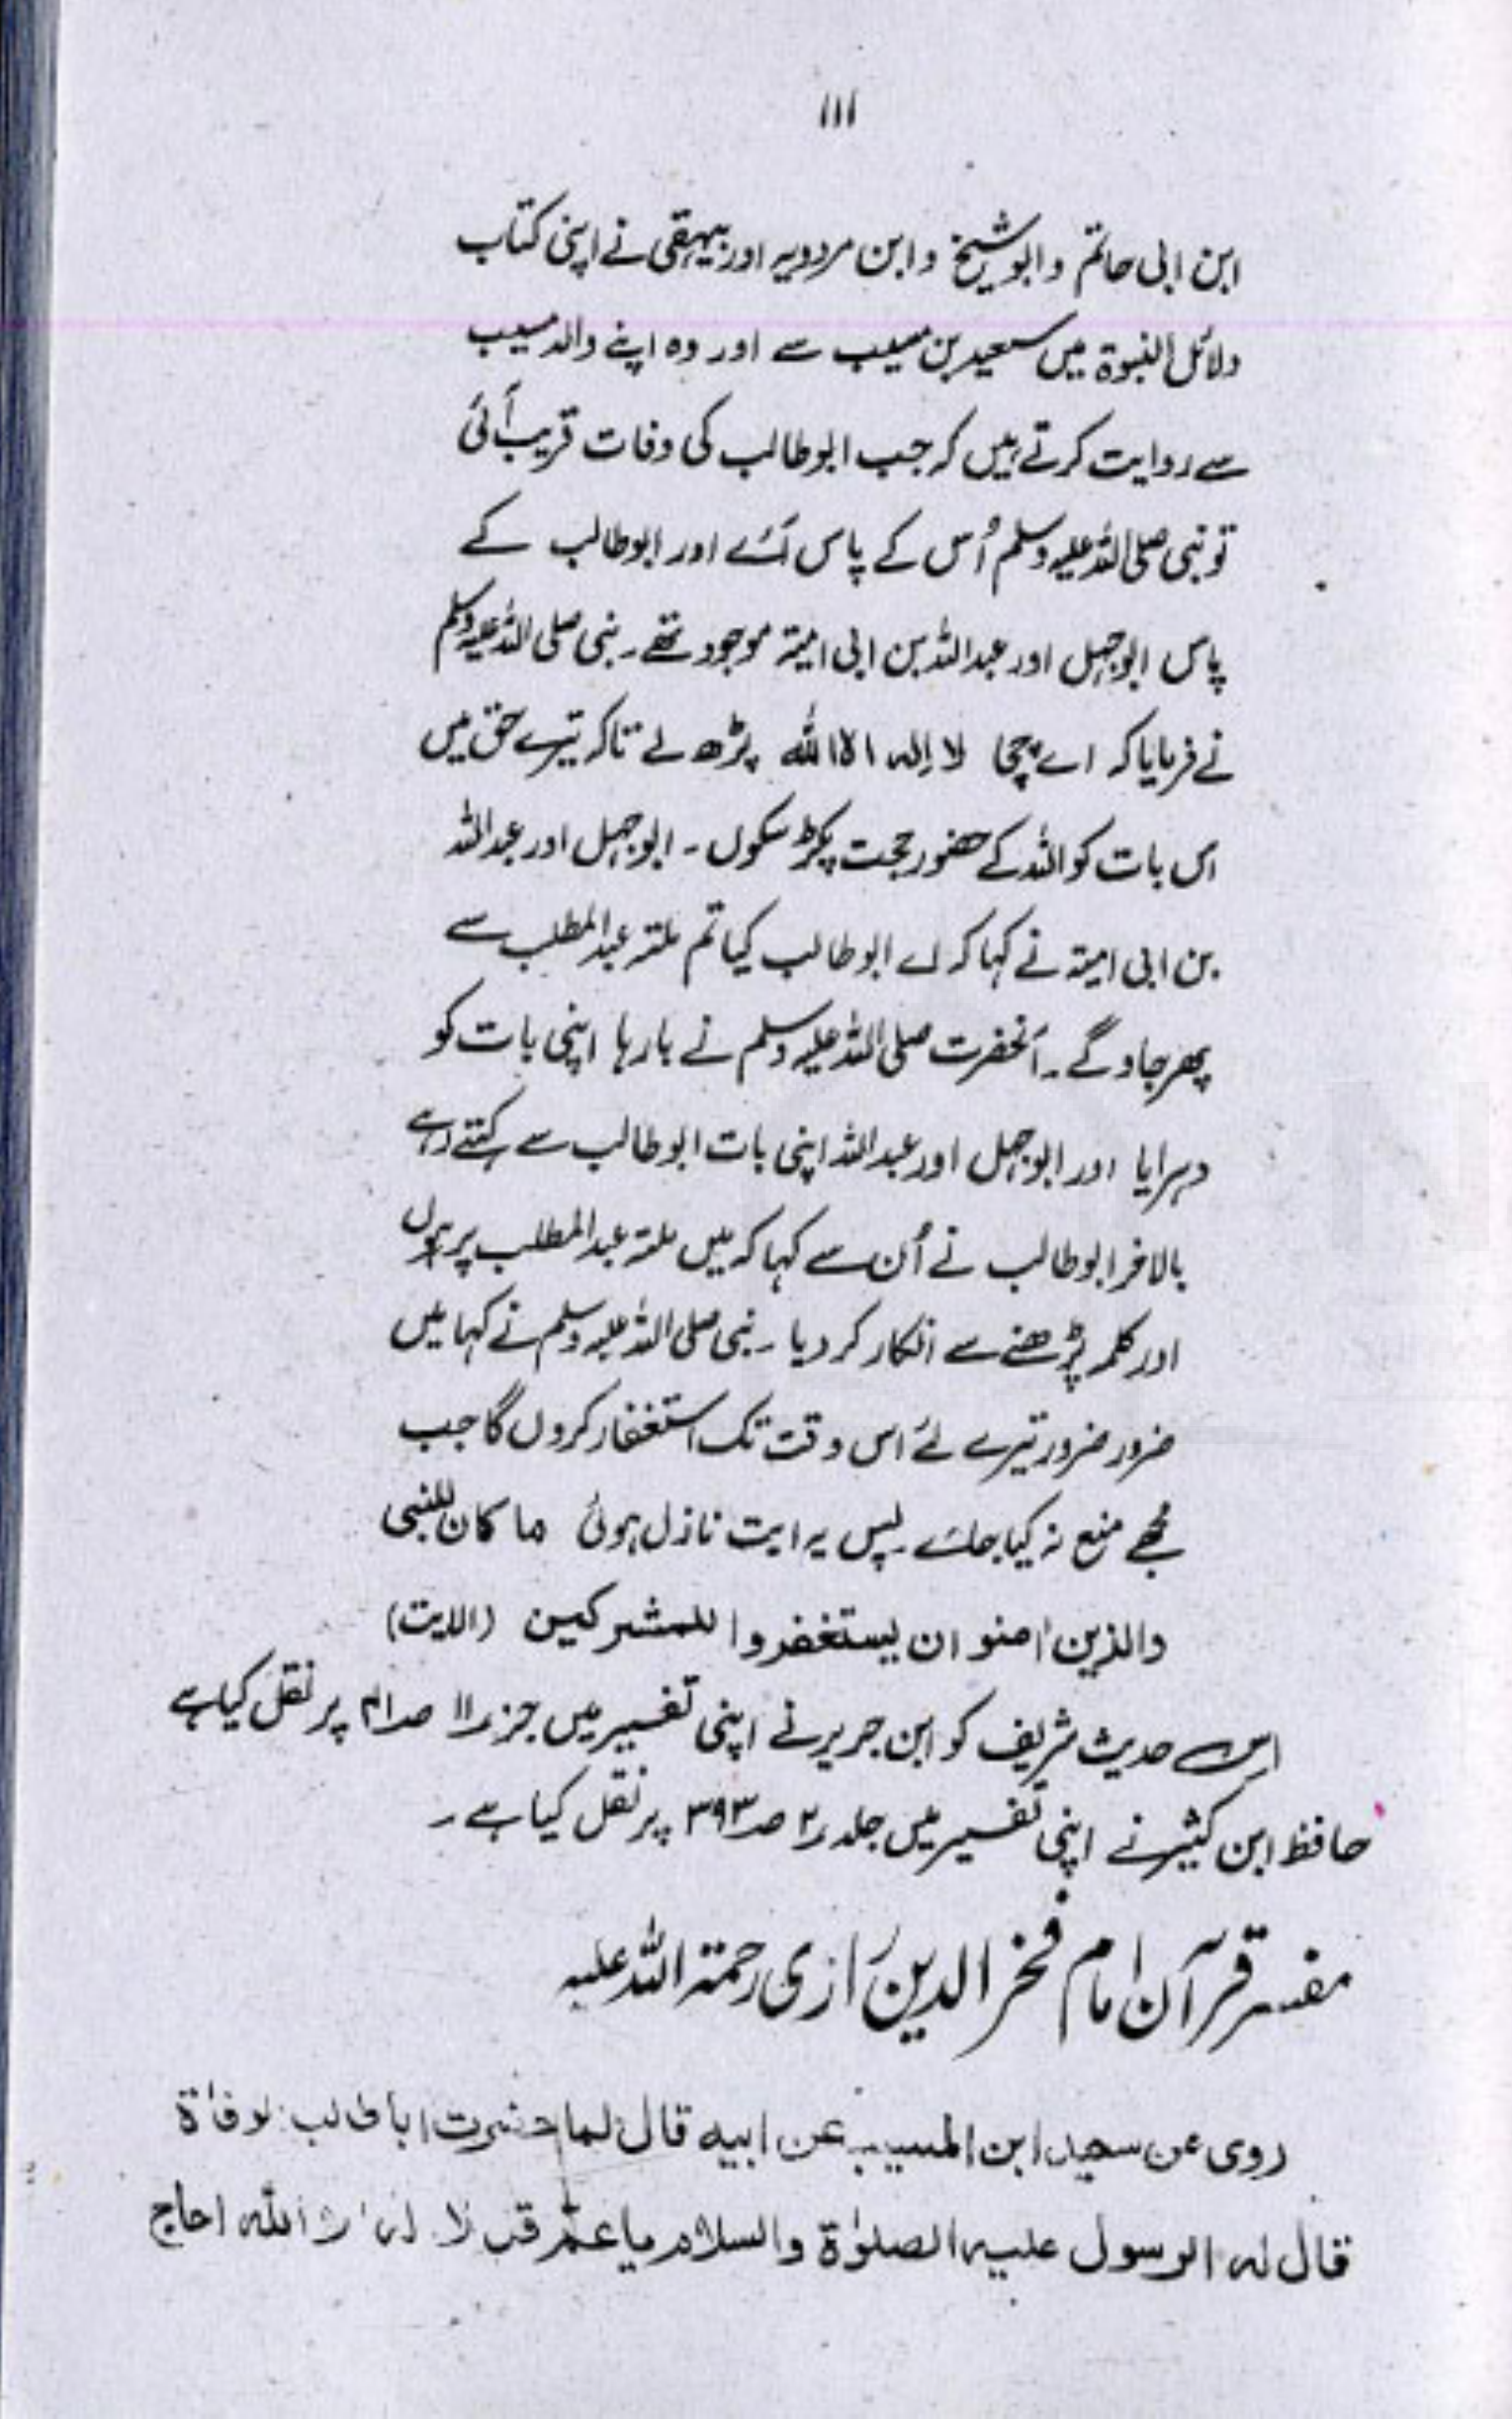 ااا
ابن ابی حاتم و ابوشیخ و ابن مردویہ اور بیہقی نے اپنی کتاب
دلائل النبوۃ میں سعید بن مسیب سے اور وہ اپنے والد مسیب
سے روایت کرتے ہیں کہ جب ابوطالب کی وفات قریب آئی
تو نبی صلی اللہ علیہ وسلم اُس کے پاس آئے اور ابوطالب کے
پاس ابوجہل اور عبداللہ بن ابی امیۃ موجود تھے۔ نبی صلی اللہ علیہ وسلم
نے فرمایا کہ اے چچا لا الہ الا اللہ پڑھ لے تاکہ تیرے حق میں
اس بات کو اللہ کے حضور حجت پکڑ سکوں۔ ابوجہل اور عبداللہ
بن ابی امیۃ نے کہا کہ اے ابوطالب کیا تم ملتہ عبدالمطلب سے
پھر جاوگے۔ آنحضرت صلی اللہ علیہ وسلم نے بارہا اپنی بات کو
دہرایا اور ابوجہل اور عبداللہ اپنی بات ابوطالب سے کہتے رہے
بالاخر ابوطالب نے اُن سے کہا کہ میں ملتہ عبدالمطلب پر ہوں
اور کلمہ پڑھنے سے انکار کر دیا۔ نبی صلی اللہ علیہ وسلم نے کہا میں
ضرور ضرور تیرے لئے اس وقت تک استغفار کروں گا جب
مجھے منع نہ کیا جائے۔ پس یہ ایت نازل ہوئی ما کان للنبی
والذین امنو ان یستغفروا للمشرکین (الایت)
اس حدیث شریف کو ابن جریر نے اپنی تفسیر میں جزء ۱۱ صہ پر نقل کیا ہے
حافظ ابن کثیر نے اپنی تفسیر میں جلد ۲ صہ ۳۹۳ پر نقل کیا ہے۔
مفسر قرآن امام فخر الدین رازی رحمتہ اللہ علیہ
روی عن سعید ابن المسیب عن ابیہ قال لما حضرت ابا طالب لوفاۃ
قال لہ الرسول علیہ الصلوٰۃ والسلام یا عم قل لا الہ الا اللہ احاج